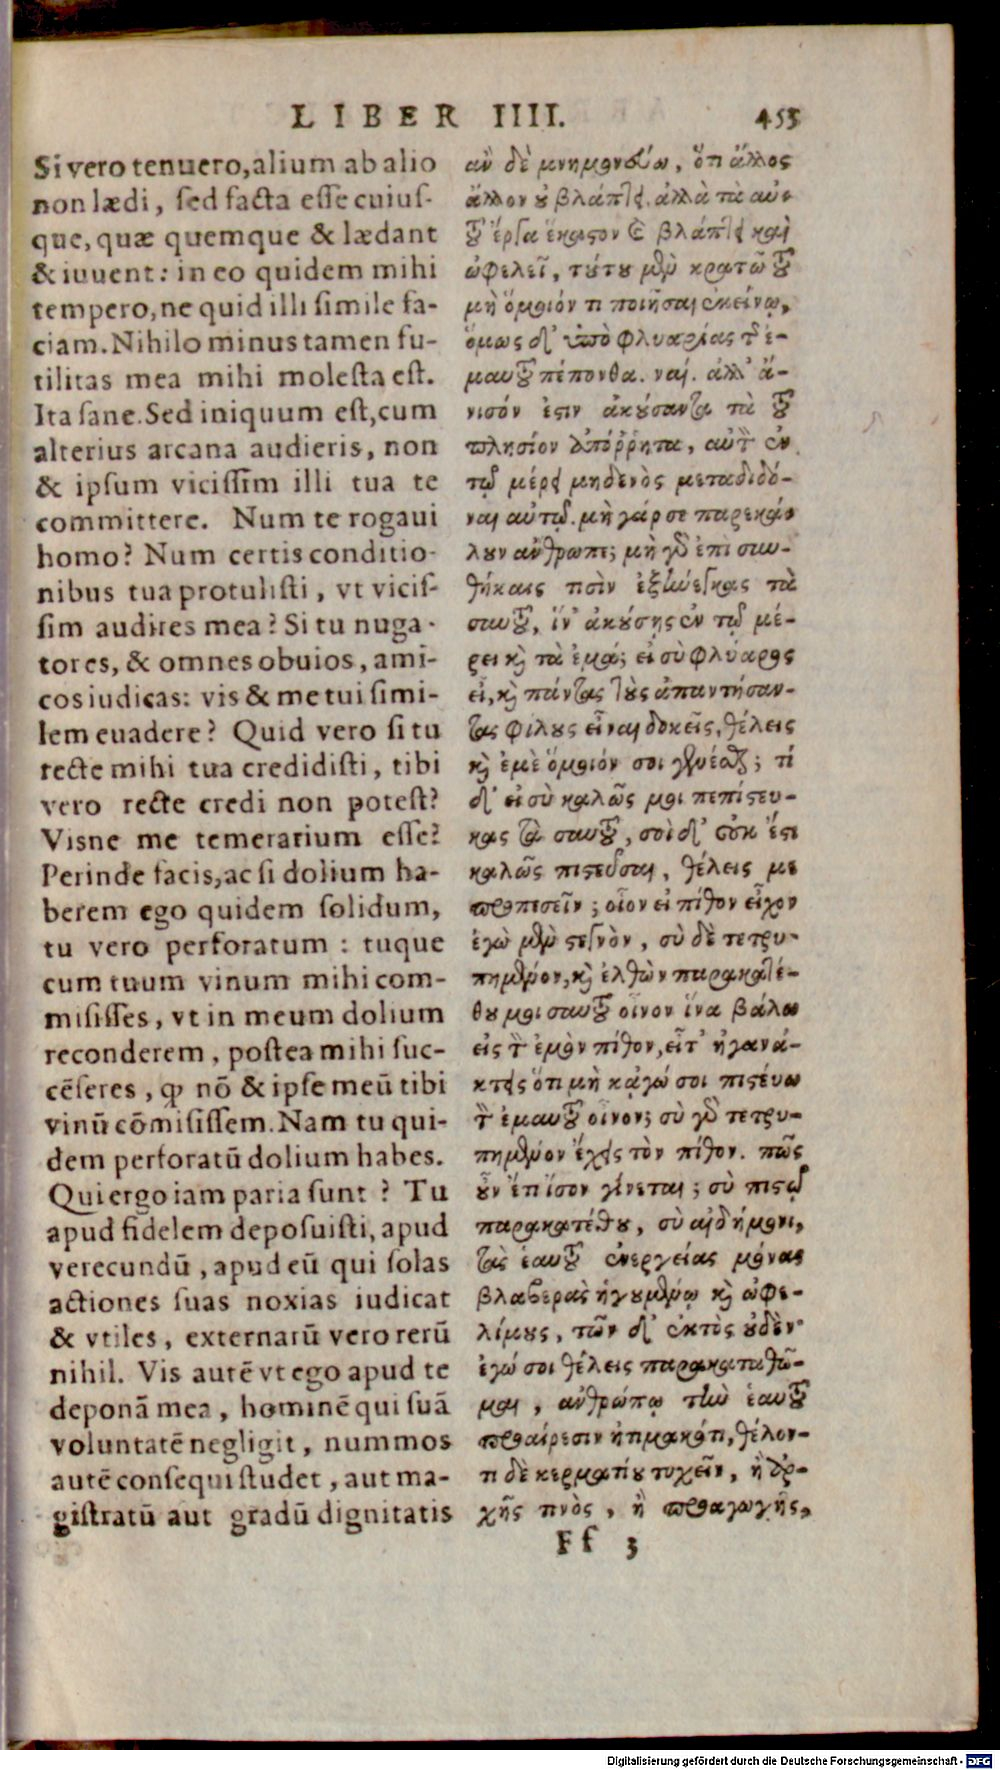 LIBER IIII. 455
Si vero tenuero, alium ab alio
non lædi, sed facta esse cuius-
que, quæ quemque & lædant
& iuuent: in eo quidem mihi
tempero, ne quid illi simile fa-
ciam. Nihilo minus tamen fu-
tilitas mea mihi molesta est.
Ita sane. Sed iniquum est, cum
alterius arcana audieris, non
& ipsum vicissim illi tua te
committere. Num te rogaui
homo? Num certis conditio-
nibus tua protulisti, vt vicis-
sim audires mea? Si tu nuga-
tores, & omnes obuios, ami-
cos iudicas: vis & me tui simi-
lem euadere? Quid vero si tu
recte mihi tua credidisti, tibi
vero recte credi non potest?
Visne me temerarium esse?
Perinde facis, ac si dolium ha-
berem ego quidem solidum,
tu vero perforatum: tuque
cum tuum vinum mihi com-
misisses, vt in meum dolium
reconderem, postea mihi suc-
cēseres, qp nō & ipse meū tibi
vinū cōmisissem. Nam tu qui-
dem perforatū dolium habes.
Qui ergo iam paria sunt? Tu
apud fidelem deposuisti, apud
verecundū, apud eū qui solas
actiones suas noxias iudicat
& vtiles, externarū vero rerū
nihil. Vis autē vt ego apud te
deponā mea, hominē qui suā
voluntatē negligit, nummos
autē consequi studet, aut ma-
gistratū aut gradū dignitatis
ἂν δὲ μνημονεύω, ὅτι ἄλλος
ἄλλον οὐ βλάπτει. ἀλλὰ τὰ αὐ
τοῦ ἔργα ἕκαστον καὶ βλάπτει καὶ
ὠφελεῖ, τούτου μὲν κρατῶ τοῦ
μὴ ὅμοιόν τι ποιῆσαι ἐκείνῳ,
ὅμως δ' ὑπὸ φλυαρίας τῆς ἐ-
μαυτοῦ πέπονθα. ναι. ἀλλ' ἄ-
νισόν ἐστιν ἀκούσαντα τὰ τοῦ
πλησίον ἀπόρρητα, αὐτὸν ἐν
τῷ μέρει μηδενὸς μεταδιδό-
ναι αὐτῷ. μὴ γάρ σε παρεκά
λουν ἄνθρωπε; μὴ γὰρ ἐπὶ συν-
θήκαις τισὶν ἐξήνεγκας τὰ
σαυτοῦ, ἵν' ἀκούσῃς ἐν τῷ μέ-
ρει καὶ τὰ ἐμά; εἰ σὺ φλύαρος
εἶ, καὶ πάντας τοὺς ἀπαντήσαν-
τας φίλους εἶναι δοκεῖς, θέλεις
καὶ ἐμὲ ὅμοιόν σοι γενέσθαι; τί
δ' εἰ σὺ καλῶς μοι πεπίστευ-
κας τὰ σαυτοῦ, σοὶ δ' οὐκ ἔστι
καλῶς πιστεῦσαι, θέλεις με
προπεσεῖν; οἷον εἰ πίθον εἶχον
ἐγὼ μὲν στεγνὸν, σὺ δὲ τετρυ-
πημένον, καὶ ἐλθὼν παρακατέ-
θου μοι σαυτοῦ οἶνον ἵνα βάλω
εἰς τὸν ἐμὸν πίθον, εἶτ' ἠγανά-
κτεις ὅτι μὴ κἀγώ σοι πιστεύω
τὸν ἐμαυτοῦ οἶνον; σὺ γὰρ τετρυ-
πημένον ἔχεις τὸν πίθον. πῶς
οὖν ἔτι ἴσον γίνεται; σὺ πιστῷ
παρακατέθου, σὺ αἰδήμονι,
τὰς ἑαυτοῦ ἐνεργείας μόνας
βλαβερὰς ἡγουμένῳ καὶ ὠφε-
λίμους, τῶν δ' ἐκτὸς οὐδὲν
ἐγώ σοι θέλεις παρακαταθῶ-
μαι, ἀνθρώπῳ τὴν ἑαυτοῦ
προαίρεσιν ἠτιμακότι, θέλον-
τι δὲ κερματίου τυχεῖν, ἢ ἀρ-
χῆς τινὸς, ἢ προαγωγῆς,
Ff 3
Digitalisierung gefördert durch die Deutsche Forschungsgemeinschaft - DFG